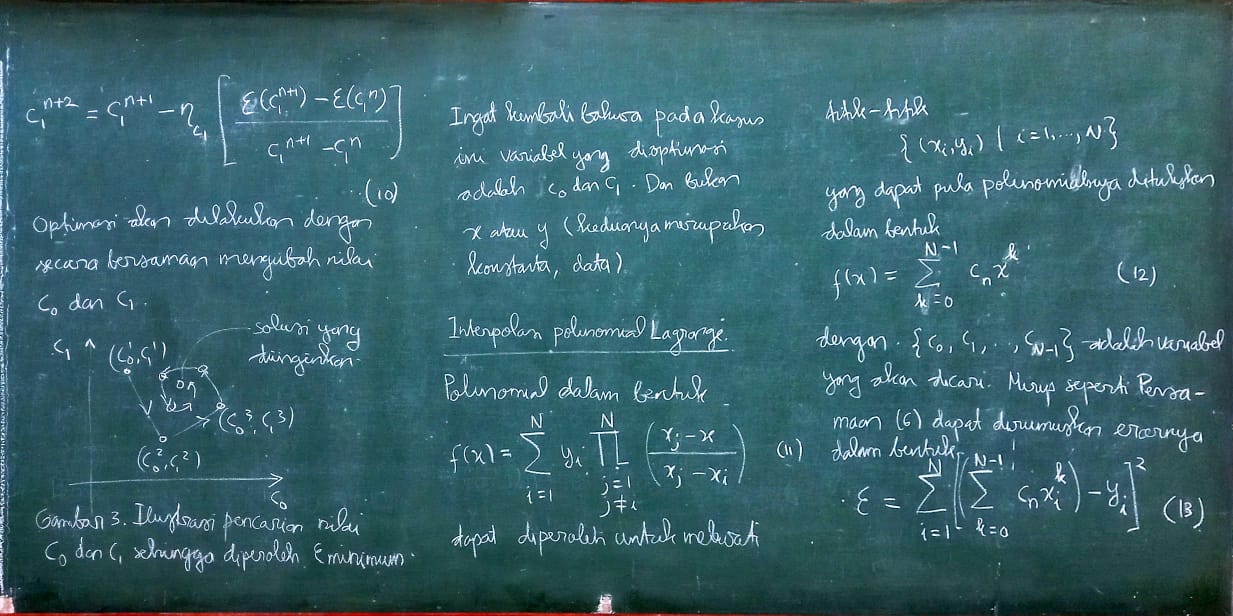 c₁ⁿ⁺² = c₁ⁿ⁺¹ − η_c₁ [ (ε(c₁ⁿ⁺¹) − ε(c₁ⁿ)) / (c₁ⁿ⁺¹ − c₁ⁿ) ]
...(10)
Optimasi akan dilakukan dengan
secara bersamaan mengubah nilai
c₀ dan c₁.
solusi yang
diinginkan.
c₁
(c₀¹, c₁¹)
(c₀³, c₁³)
(c₀², c₁²)
c₀
Gambar 3. Ilustrasi pencarian nilai
c₀ dan c₁ sehingga diperoleh ε minimum.
Ingat kembali bahwa pada kasus
ini variabel yang dioptimasi
adalah c₀ dan c₁. Dan bukan
x atau y (keduanya merupakan
konstanta, data)
Interpolasi polinomial Lagrange.
Polinomial dalam bentuk
f(x) = Σ_{i=1}^{N} y_i Π_{j=1, j≠i}^{N} ( (x_j − x) / (x_j − x_i) ) (11)
dapat diperoleh untuk melewati
titik-titik
{(x_i, y_i) | i=1, ..., N}
yang dapat pula polinomialnya dituliskan
dalam bentuk
f(x) = Σ_{k=0}^{N−1} c_n x^k (12)
dengan {c₀, c₁, .., c_{N−1}} adalah variabel
yang akan dicari. Mirip seperti Persa-
maan (6) dapat dirumuskan errornya
dalam bentuk
ε = Σ_{i=1}^{N} [ ( Σ_{k=0}^{N−1} c_n x_i^k ) − y_i ]² (13)